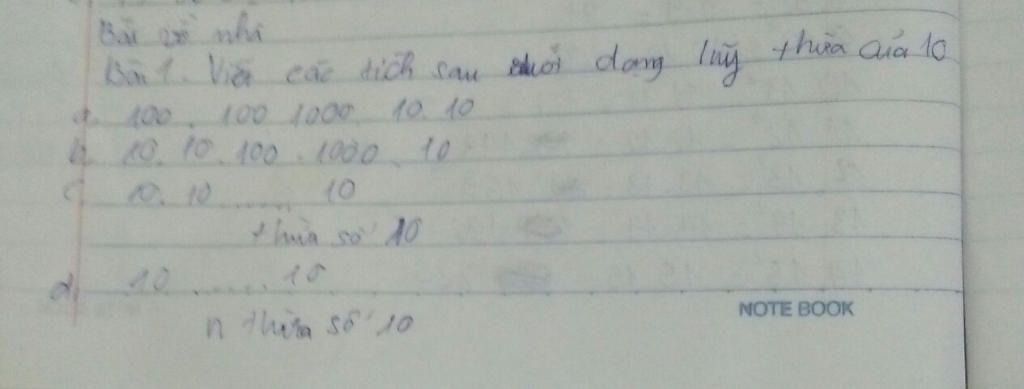 Bài về nhà
Bài 1. Viết các tích sau dưới dạng luỹ thừa của 10
a. 100 . 100 1000 10. 10
b. 10. 10. 100 . 1000 . 10
c 10. 10 ...... 10
thừa số 10
d, 10 ...... 10
n thừa số 10
NOTE BOOK